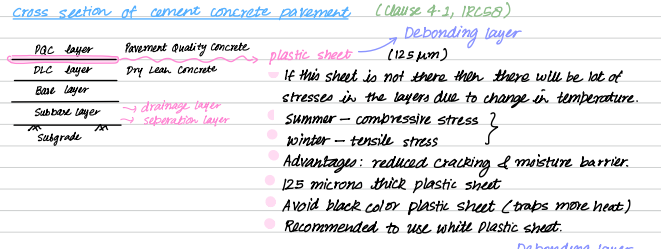 Cross section of cement concrete pavement (Clause 4.1, IRC58)
Debonding layer
PQC layer Pavement Quality Concrete plastic sheet (125 μm)
DLC layer Dry Lean Concrete
Base layer
Subbase layer → drainage layer
→ seperation layer
Subgrade
If this sheet is not there then there will be lot of
stresses in the layers due to change in temperature.
Summer - compressive stress
winter - tensile stress
Advantages: reduced cracking & moisture barrier.
125 microns thick plastic sheet
Avoid black color plastic sheet (traps more heat)
Recommended to use white plastic sheet.
Debonding layer